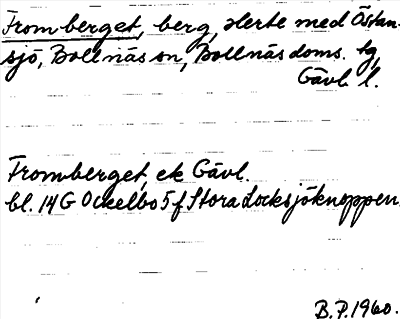 Fromberget, berg, Herte med Östan-
sjö, Bollnäs sn, Bollnäs doms. tg,
Gävl. l.
Fromberget, ek Gävl.
bl. 14G Ockelbo 5 f Stora Locksjöknoppen.
B.P. 1960.